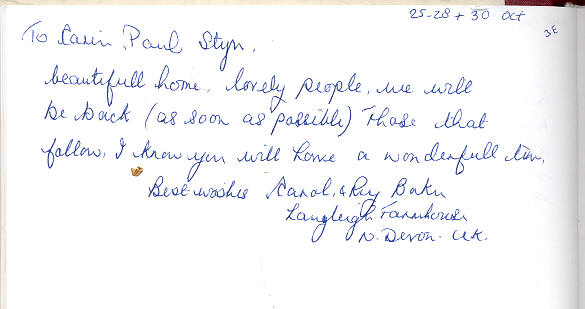 25-28 + 30 Oct
3E
To Carin, Paul Styn,
beautifull home, lovely people, we will
be back (as soon as possible) Those that
follow, I know you will have a wonderfull time,
Best wishes Carol, & Roy Baker
Langleigh Farmhouse
N. Devon. UK.